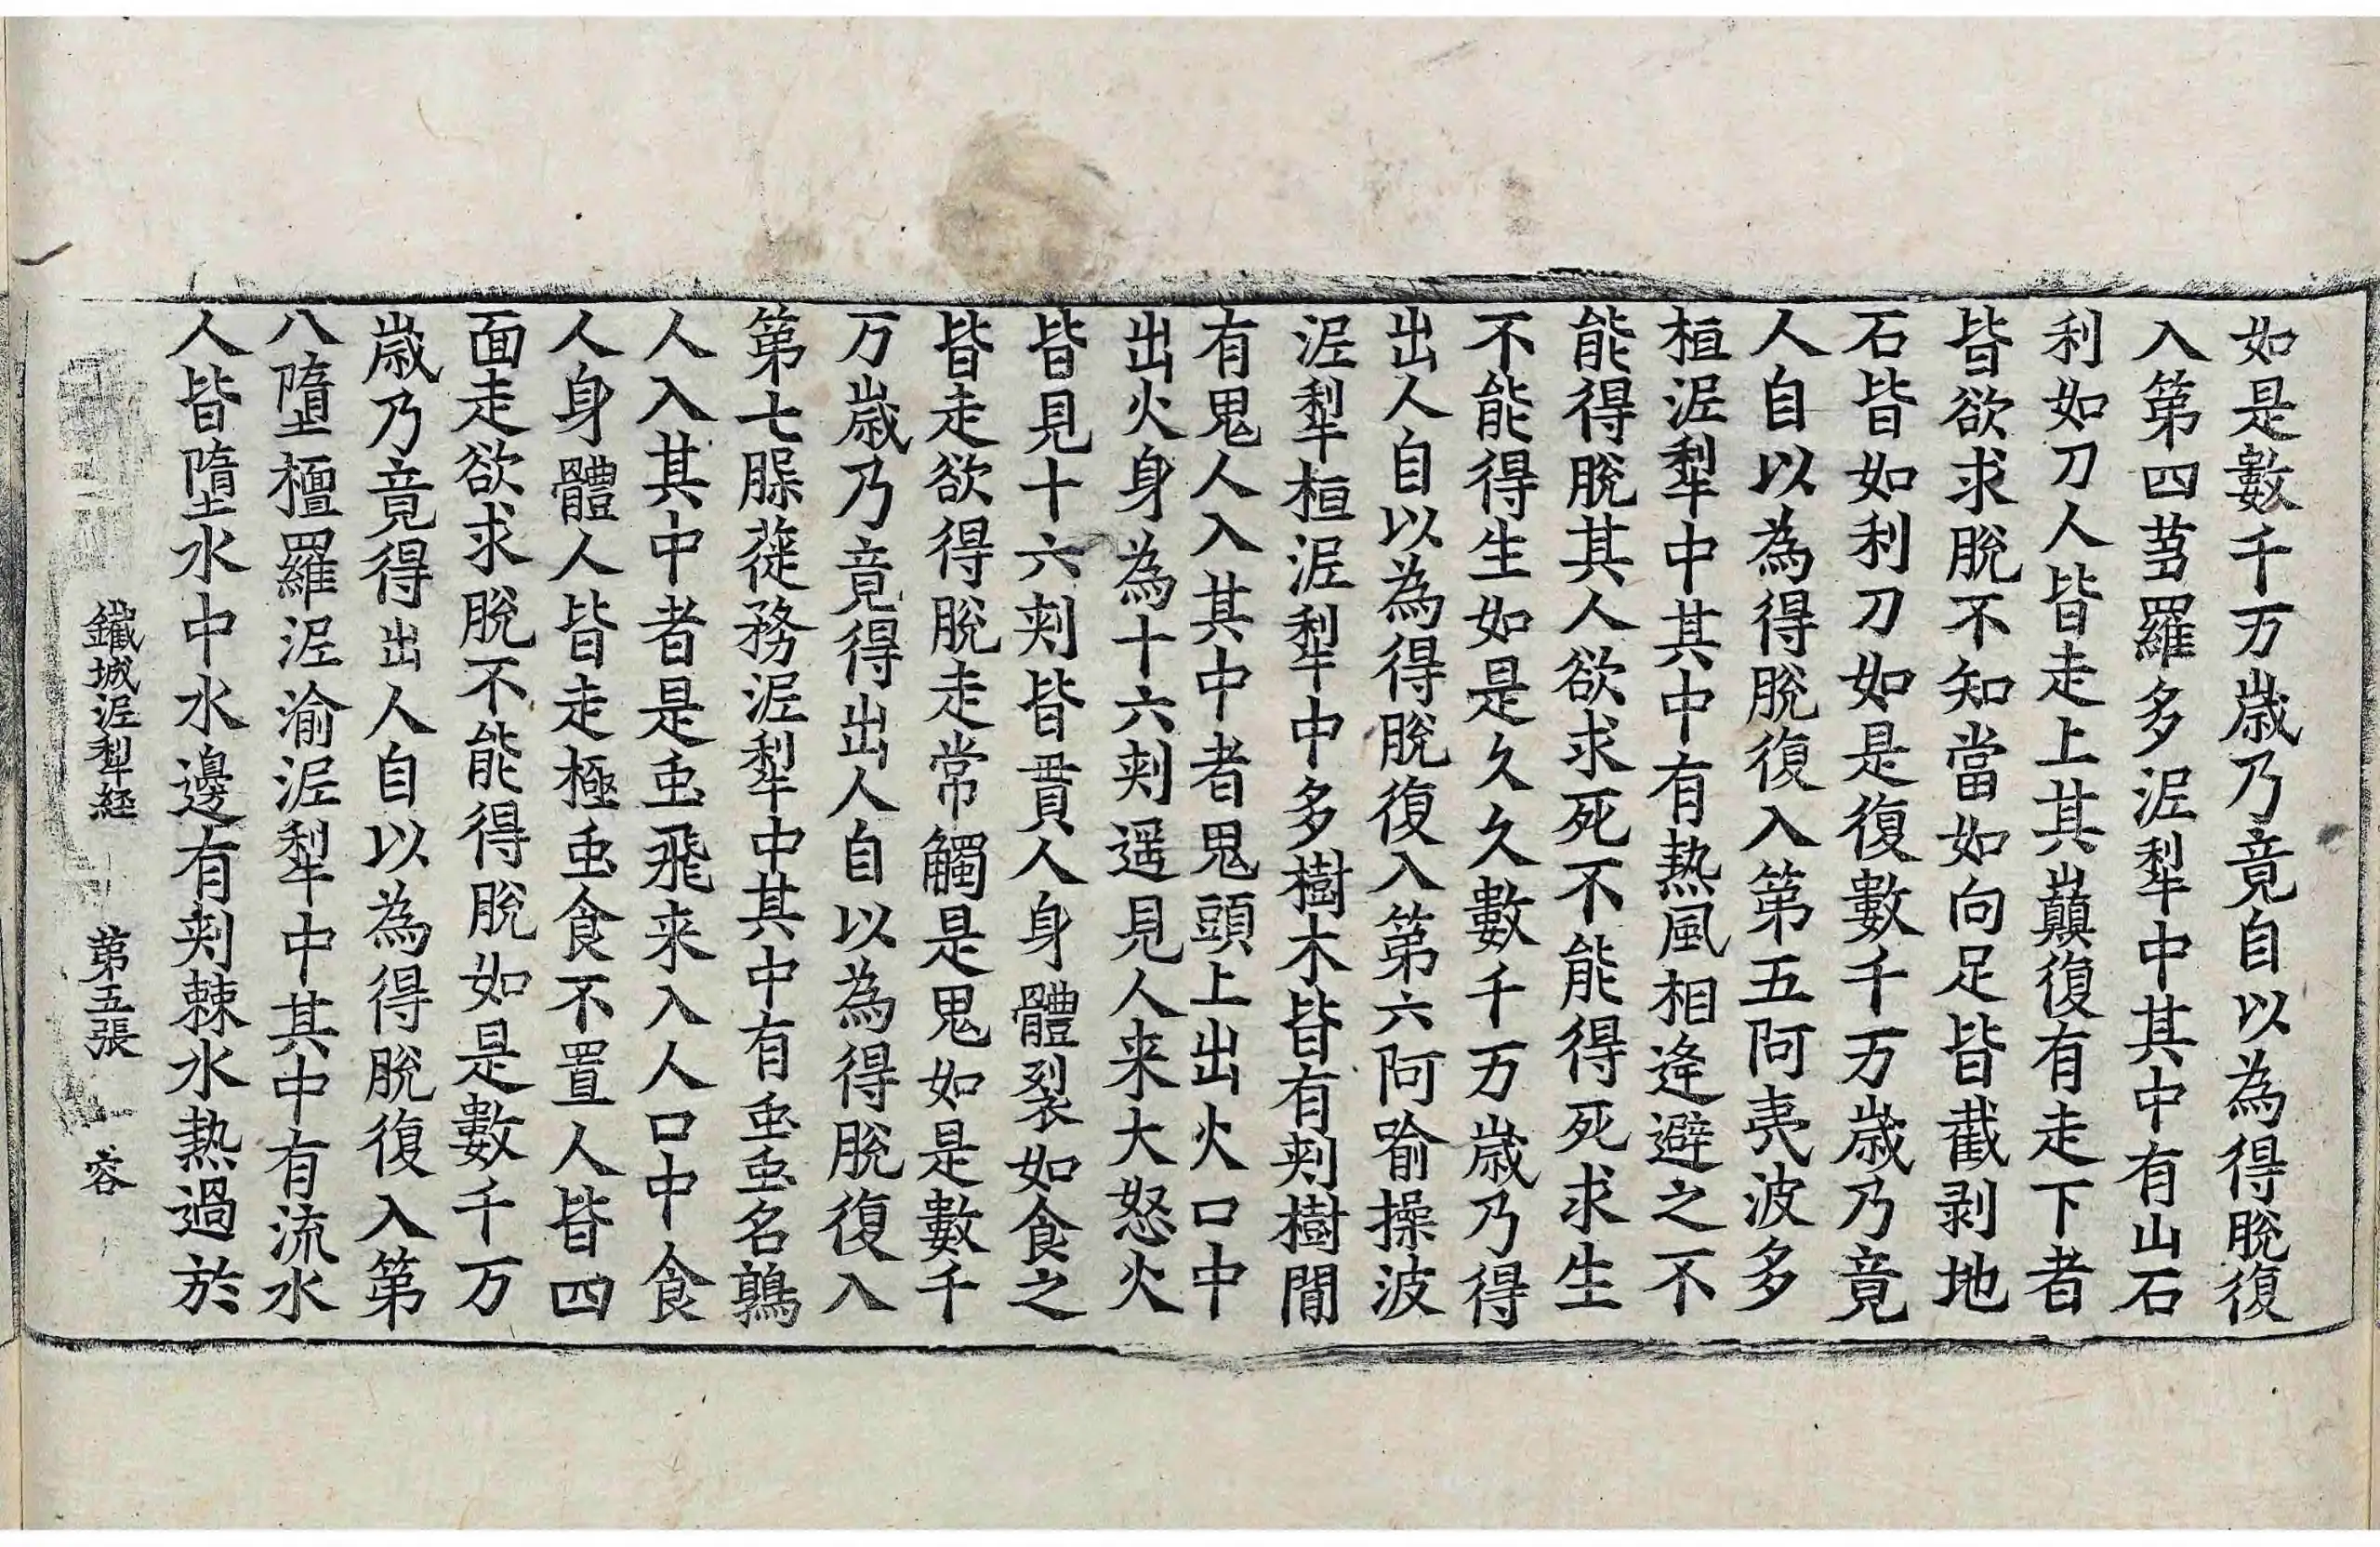 如是數千万歲乃竟自以為得脫復
入第四䓟羅多泥犁中其中有山石
利如刀人皆走上其巓復有走下者
皆欲求脫不知當如向足皆截剥地
石皆如利刀如是復數千万歲乃竟
人自以為得脫復入第五阿夷波多
桓泥犁中其中有熱風相逄避之不
能得脫其人欲求死不能得死求生
不能得生如是久久數千万歲乃得
出人自以為得脫復入第六阿喻操波
泥犁桓泥犁中多樹木皆有刾樹間
有鬼人入其中者鬼頭上出火口中
出火身為十六刾遥見人来大怒火
皆見十六刾皆貫人身體裂如食之
皆走欲得脫走常觸是鬼如是數千
万歲乃竟得出人自以為得脫復入
第七䐨蓰務泥犁中其中有䖝䖝名鶉
人入其中者是䖝飛来入人口中食
人身體人皆走極䖝食不置人皆四
面走欲求脫不能得脫如是數千万
歲乃竟得出人自以為得脫復入第
八墮檀羅泥渝泥犁中其中有流水
人皆墮水中水邊有刾棘水熱過於
鐵城泥犁經 第五張 容